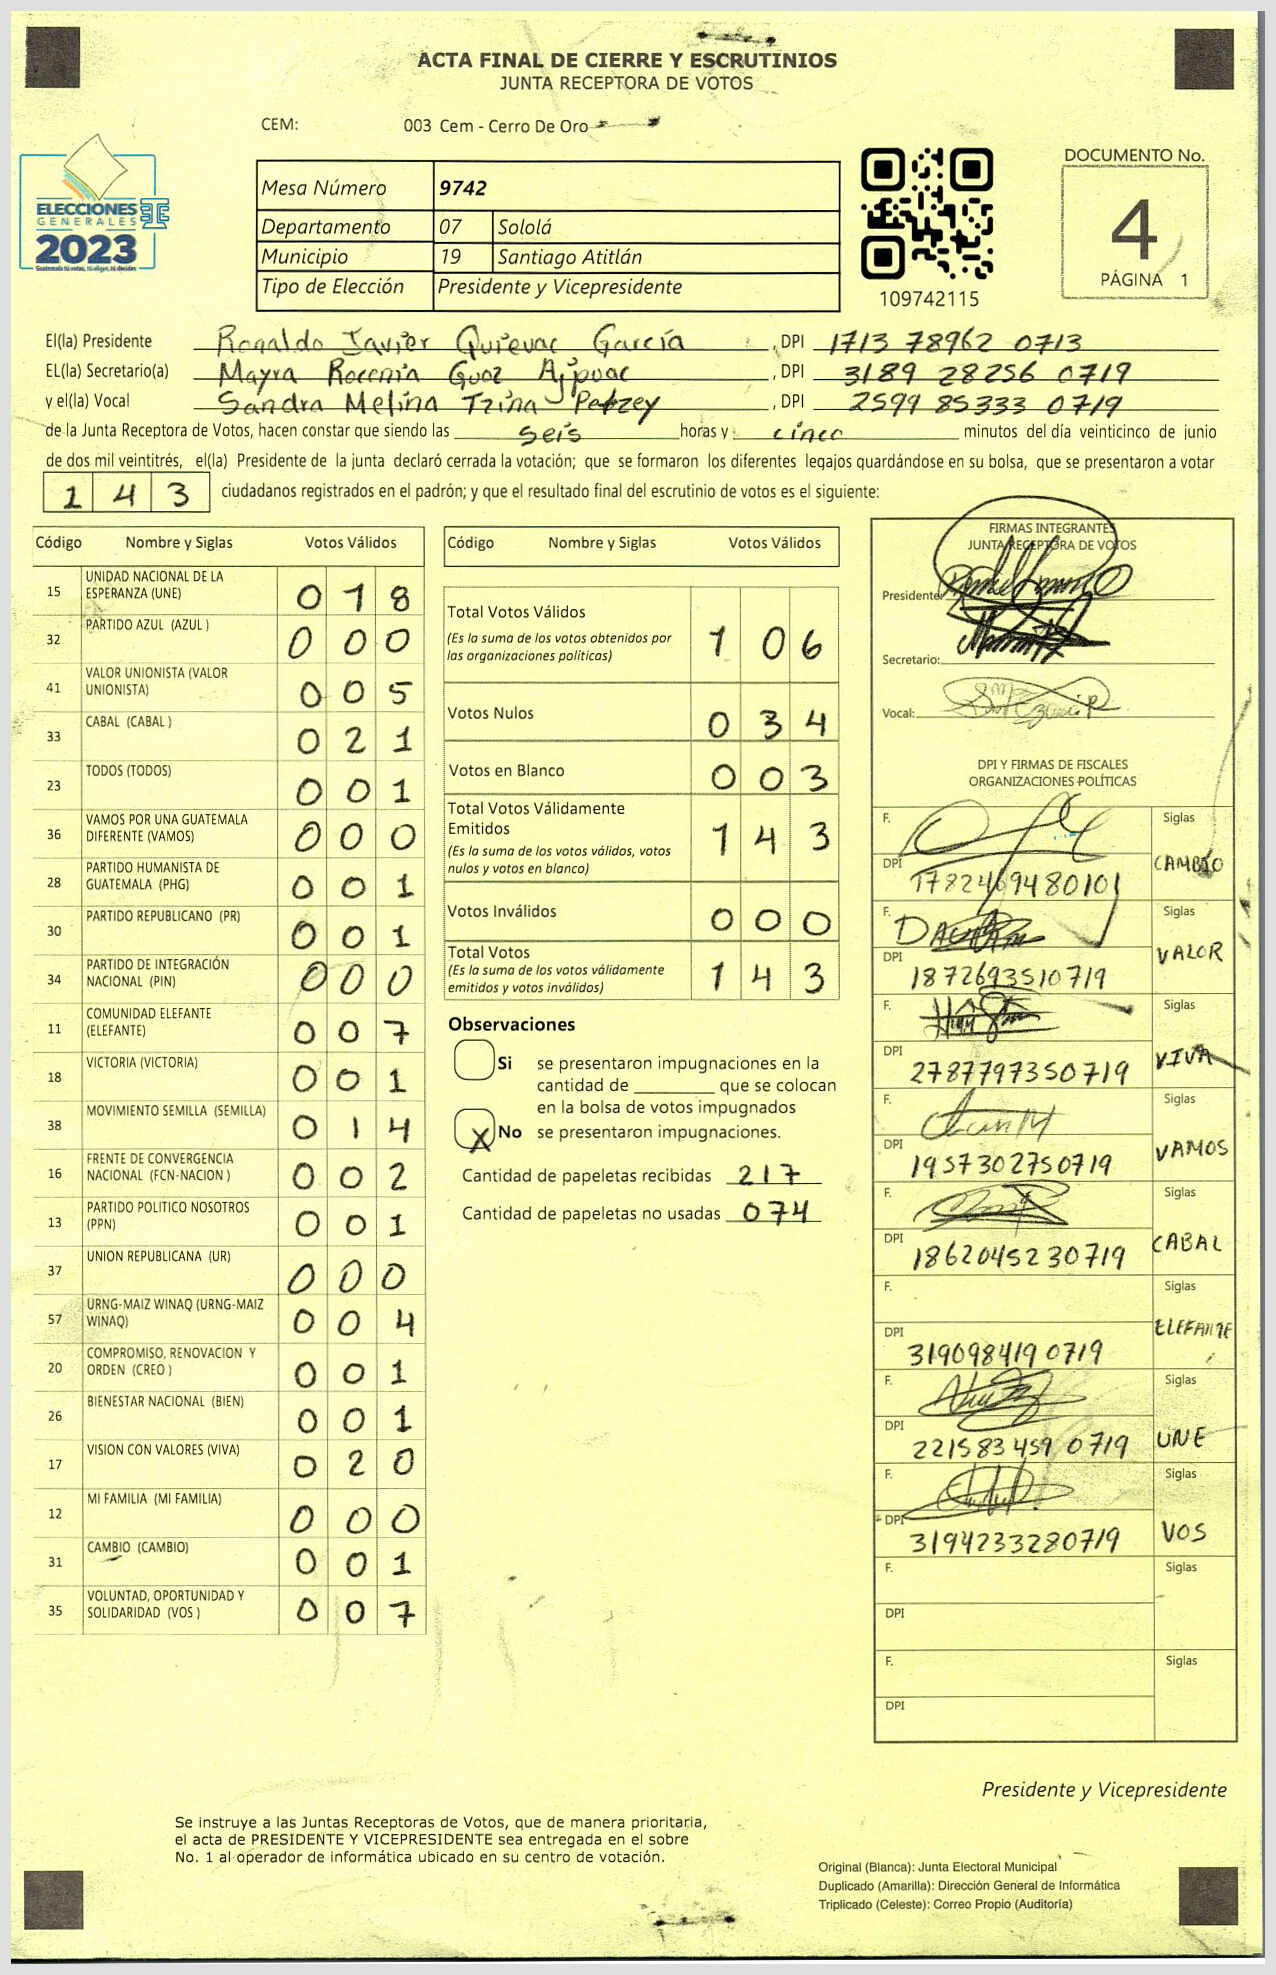 ACTA FINAL DE CIERRE Y ESCRUTINIOS
JUNTA RECEPTORA DE VOTOS
CEM: 003 Cem - Cerro De Oro
ELECCIONES
GENERALES
2023
Mesa Número 9742
Departamento 07 Sololá
Municipio 19 Santiago Atitlán
Tipo de Elección Presidente y Vicepresidente
109742115
DOCUMENTO No.
4
PÁGINA 1
El(la) Presidente Ronaldo Javier Quievac García, DPI 1713 78962 0713
EL(la) Secretario(a) Mayra Rocenia Guoz Ajpuac, DPI 3189 28256 0719
y el(la) Vocal Sandra Melina Tzina Petzey, DPI 2599 85333 0719
de la Junta Receptora de Votos, hacen constar que siendo las seis horas y cinco minutos del día veinticinco de junio
de dos mil veintitrés, el(la) Presidente de la junta declaró cerrada la votación; que se formaron los diferentes legajos guardándose en su bolsa, que se presentaron a votar
143 ciudadanos registrados en el padrón; y que el resultado final del escrutinio de votos es el siguiente:
Código Nombre y Siglas Votos Válidos
15 UNIDAD NACIONAL DE LA ESPERANZA (UNE) 018
32 PARTIDO AZUL (AZUL ) 000
41 VALOR UNIONISTA (VALOR UNIONISTA) 005
33 CABAL (CABAL ) 021
23 TODOS (TODOS) 001
36 VAMOS POR UNA GUATEMALA DIFERENTE (VAMOS) 000
28 PARTIDO HUMANISTA DE GUATEMALA (PHG) 001
30 PARTIDO REPUBLICANO (PR) 001
34 PARTIDO DE INTEGRACIÓN NACIONAL (PIN) 000
11 COMUNIDAD ELEFANTE (ELEFANTE) 007
18 VICTORIA (VICTORIA) 001
38 MOVIMIENTO SEMILLA (SEMILLA) 014
16 FRENTE DE CONVERGENCIA NACIONAL (FCN-NACION ) 002
13 PARTIDO POLITICO NOSOTROS (PPN) 001
37 UNION REPUBLICANA (UR) 000
57 URNG-MAIZ WINAQ (URNG-MAIZ WINAQ) 004
20 COMPROMISO, RENOVACION Y ORDEN (CREO ) 001
26 BIENESTAR NACIONAL (BIEN) 001
17 VISION CON VALORES (VIVA) 020
12 MI FAMILIA (MI FAMILIA) 000
31 CAMBIO (CAMBIO) 001
35 VOLUNTAD, OPORTUNIDAD Y SOLIDARIDAD (VOS ) 007
Código Nombre y Siglas Votos Válidos
Total Votos Válidos 106
(Es la suma de los votos obtenidos por
las organizaciones políticas)
Votos Nulos 034
Votos en Blanco 003
Total Votos Válidamente
Emitidos 143
(Es la suma de los votos válidos, votos
nulos y votos en blanco)
Votos Inválidos 000
Total Votos 143
(Es la suma de los votos válidamente
emitidos y votos inválidos)
Observaciones
Si se presentaron impugnaciones en la
cantidad de ________ que se colocan
en la bolsa de votos impugnados
X No se presentaron impugnaciones.
Cantidad de papeletas recibidas 217
Cantidad de papeletas no usadas 074
FIRMAS INTEGRANTES
JUNTA RECEPTORA DE VOTOS
Presidente:
Secretario:
Vocal:
DPI Y FIRMAS DE FISCALES
ORGANIZACIONES POLÍTICAS
F. Siglas
DPI 1782469480101 CAMBIO
F. Siglas
DPI 1872693510719 VALOR
F. Siglas
DPI 2787797350719 VIVA
F. Siglas
DPI 1957302750719 VAMOS
F. Siglas
DPI 1862045230719 CABAL
F. Siglas
DPI 3190984190719 ELEFANTE
F. Siglas
DPI 2215834590719 UNE
F. Siglas
DPI 3194233280719 VOS
F. Siglas
DPI
F. Siglas
DPI
Presidente y Vicepresidente
Se instruye a las Juntas Receptoras de Votos, que de manera prioritaria,
el acta de PRESIDENTE Y VICEPRESIDENTE sea entregada en el sobre
No. 1 al operador de informática ubicado en su centro de votación.
Original (Blanca): Junta Electoral Municipal
Duplicado (Amarilla): Dirección General de Informática
Triplicado (Celeste): Correo Propio (Auditoría)